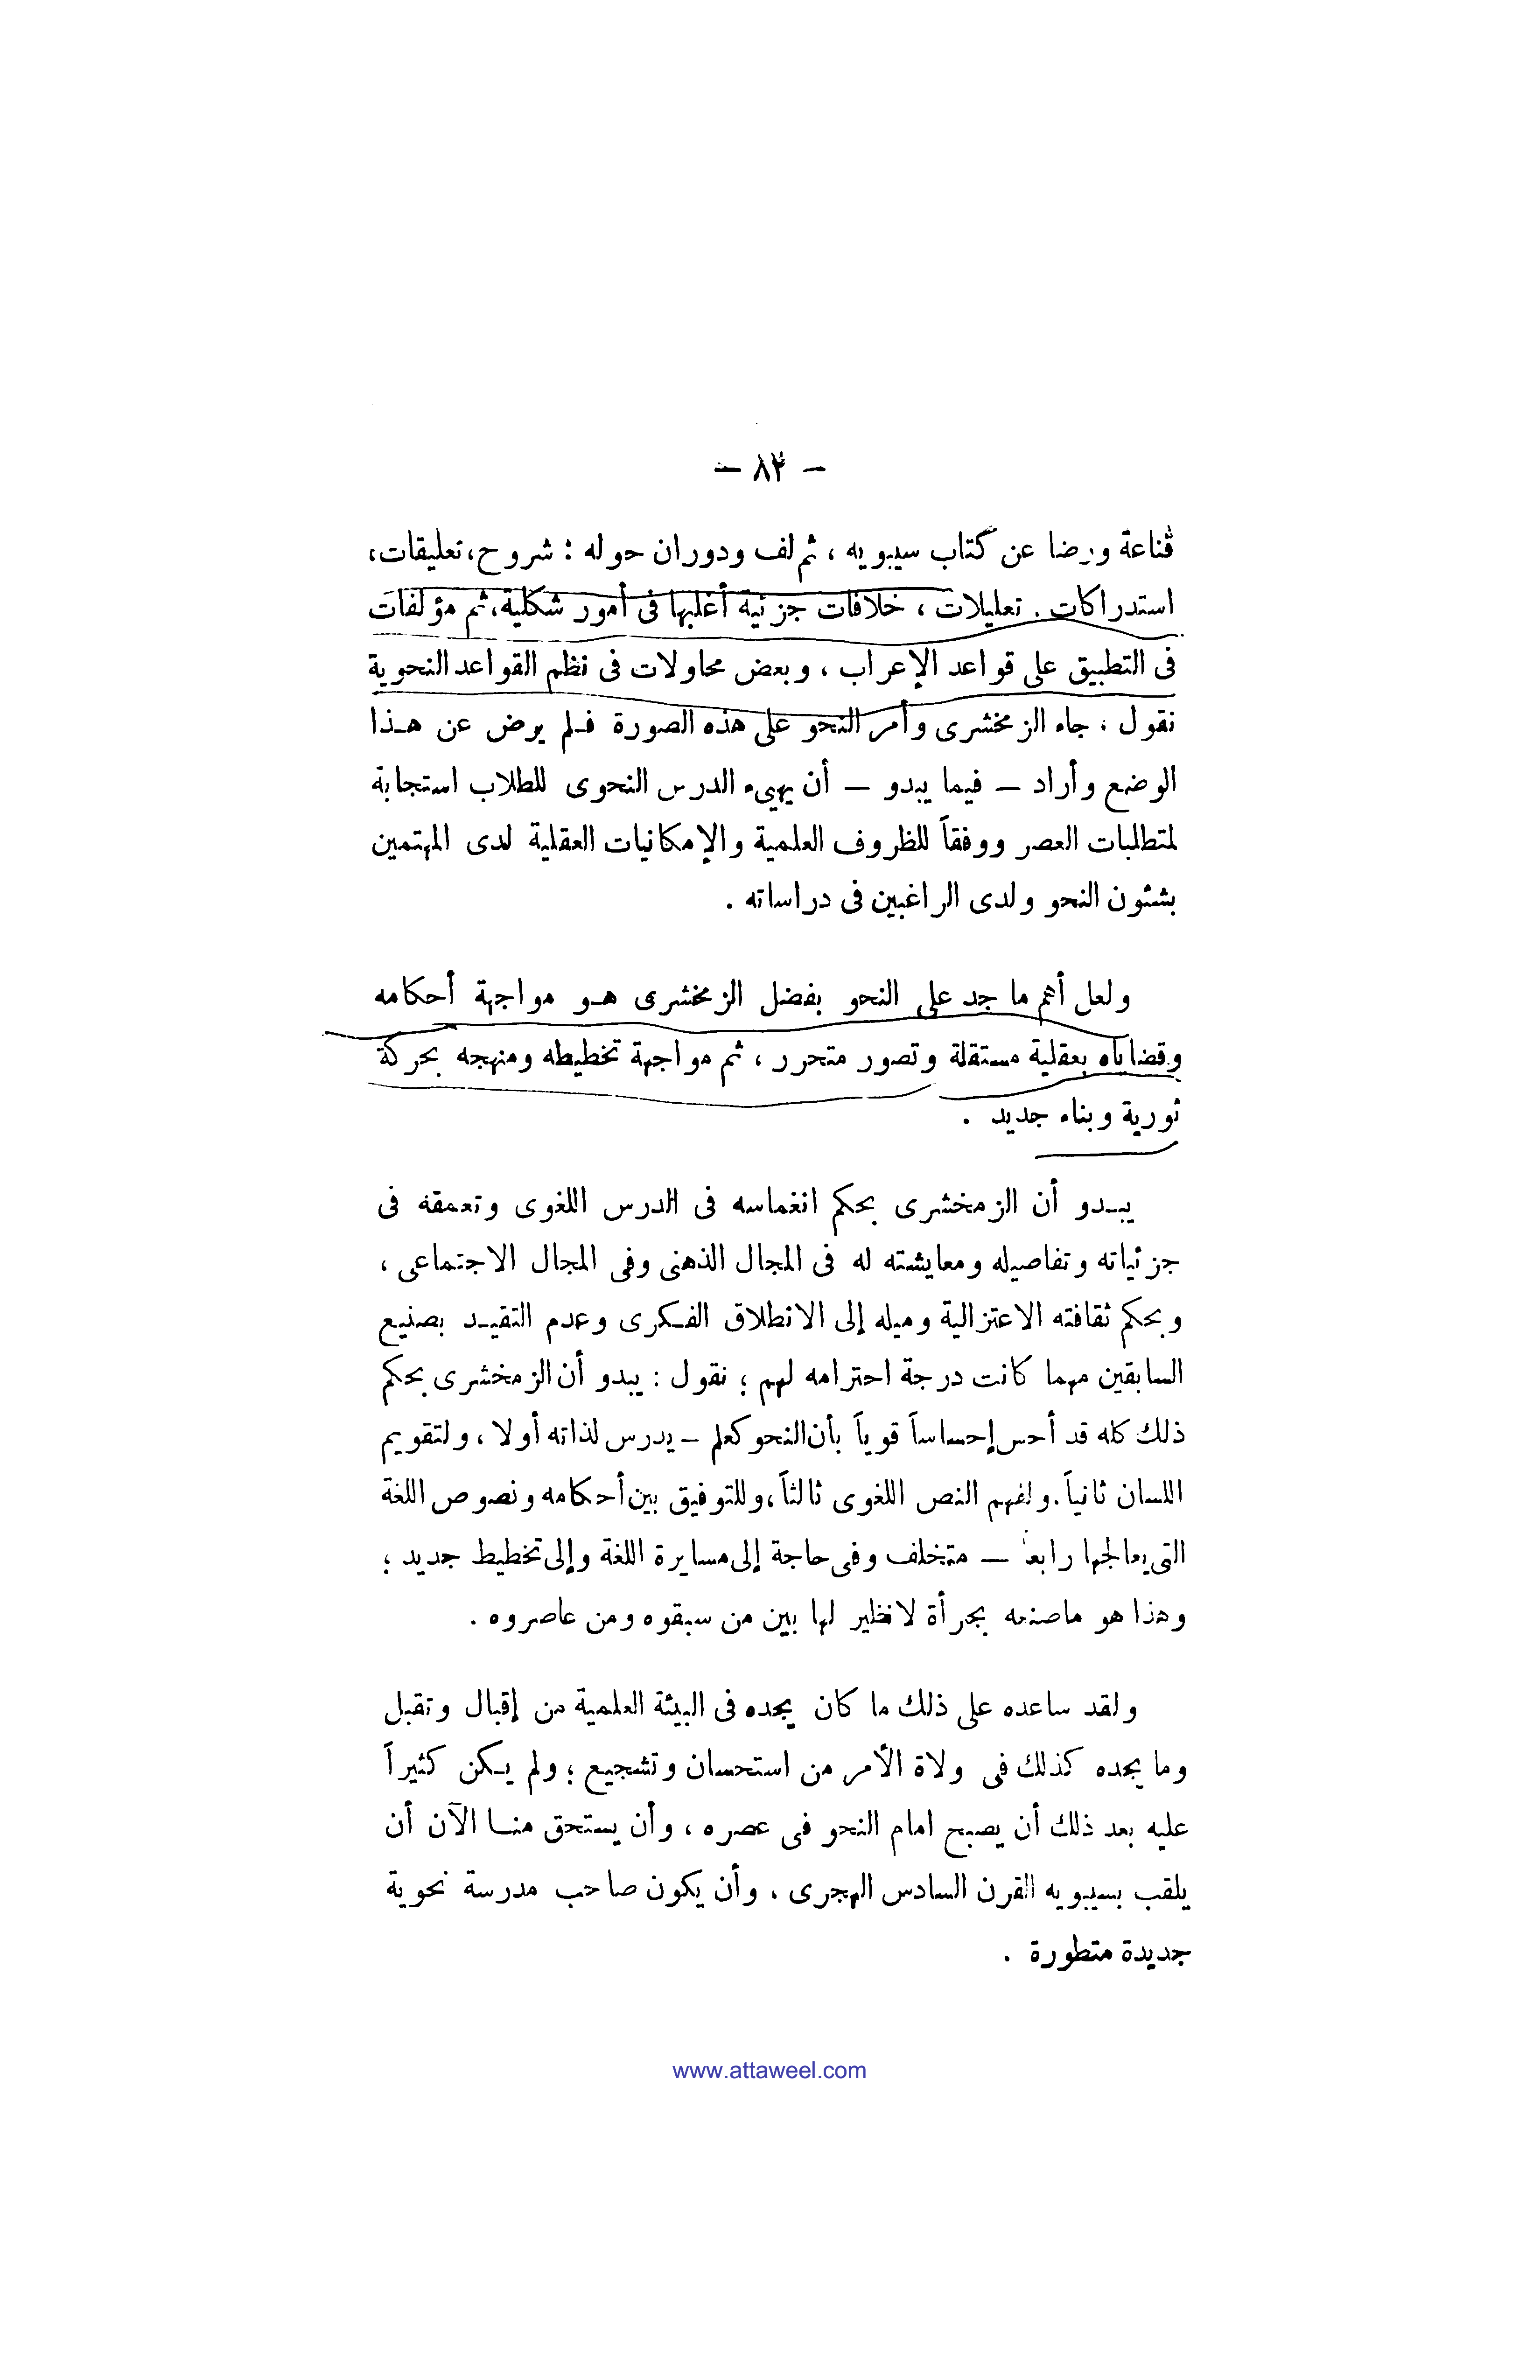 — ٨٢ —
قناعة ورضا عن كتاب سيبويه ، ثم لف ودوران حوله : شروح، تعليقات،
استدراكات . تعليلات ، خلافات جزئية أغلبها فى أمور شكلية، ثم مؤلفات
فى التطبيق على قواعد الإعراب ، وبعض محاولات فى نظم القواعد النحوية
نقول ، جاء الزمخشرى وأمر النحو على هذه الصورة فلم يرض عن هذا
الوضع وأراد — فيما يبدو — أن يهيىء الدرس النحوى للطلاب استجابة
لمتطلبات العصر ووفقاً للظروف العلمية والإمكانيات العقلية لدى المهتمين
بشئون النحو ولدى الراغبين فى دراساته .
ولعل أهم ما جد على النحو بفضل الزمخشرى هو مواجهة أحكامه
وقضاياه بعقلية مستقلة وتصور متحرر ، ثم مواجهة تخطيطه ومنهجه بحركة
ثورية وبناء جديد .
يبدو أن الزمخشرى بحكم انغماسه فى الدرس اللغوى وتعمقه فى
جزئياته وتفاصيله ومعايشته له فى المجال الذهنى وفى المجال الاجتماعى ،
وبحكم ثقافته الاعتزالية وميله إلى الانطلاق الفكرى وعدم التقيد بصنيع
السابقين مهما كانت درجة احترامه لهم ؛ نقول : يبدو أن الزمخشرى بحكم
ذلك كله قد أحس إحساساً قوياً بأن النحو كعلم — يدرس لذاته أولا ، ولتقويم
اللسان ثانياً . ولفهم النص اللغوى ثالثاً ، وللتوفيق بين أحكامه ونصوص اللغة
التى يعالجها رابعاً — متخلف وفى حاجة إلى مسايرة اللغة وإلى تخطيط جديد ؛
وهذا هو ماصنعه بجرأة لا نظير لها بين من سبقوه ومن عاصروه .
ولقد ساعده على ذلك ما كان يجده فى البيئة العلمية من إقبال وتقبل
وما يجده كذلك فى ولاة الأمر من استحسان وتشجيع ؛ ولم يكن كثيراً
عليه بعد ذلك أن يصبح امام النحو فى عصره ، وأن يستحق منا الآن أن
يلقب بسيبويه القرن السادس الهجرى ، وأن يكون صاحب مدرسة نحوية
جديدة متطورة .
www.attaweel.com